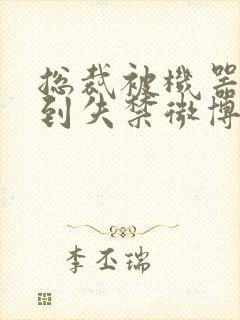 总裁被機器
到失禁微博
李丕瑞